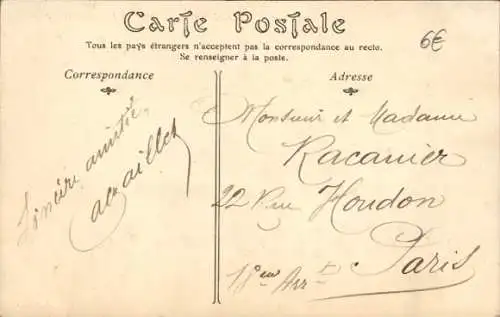 Carte Postale
6€
Tous les pays étrangers n'acceptent pas la correspondance au recto.
Se renseigner à la poste.
Correspondance
Sincère amitié
Adresse
Monsieur et Madame
Racanier
22 Rue Houdon
Paris
18eme Arrt